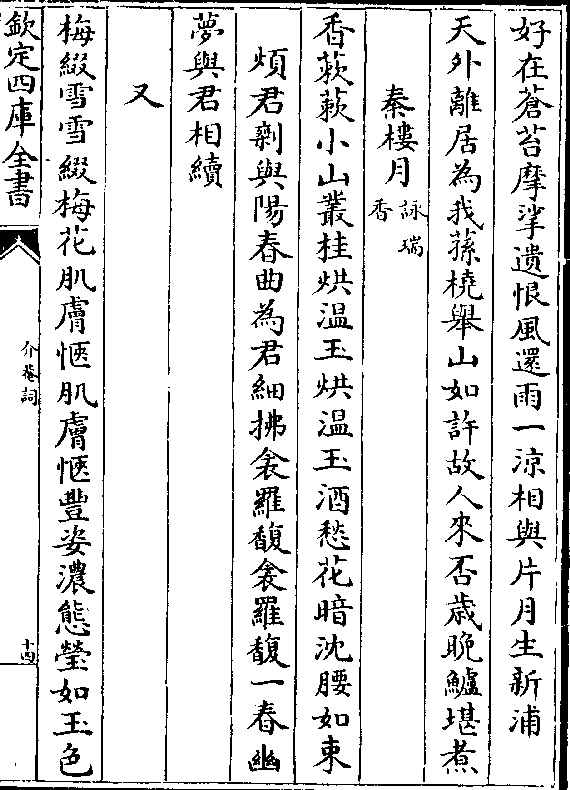 好在蒼苔摩挲遺恨風還雨一涼相與片月生新浦
天外離居為我蓀橈舉山如許故人來否歲晚鱸堪煮
秦樓月詠瑞香
香蔌蔌小山叢桂烘温玉烘温玉酒愁花暗沈腰如束
煩君剰與陽春曲為君細拂衾羅馥衾羅馥一春幽
夢與君相續
又
梅綴雪雪綴梅花肌膚愜肌膚愜豐姿濃態瑩如玉色
欽定四庫全書
介菴詞
十四